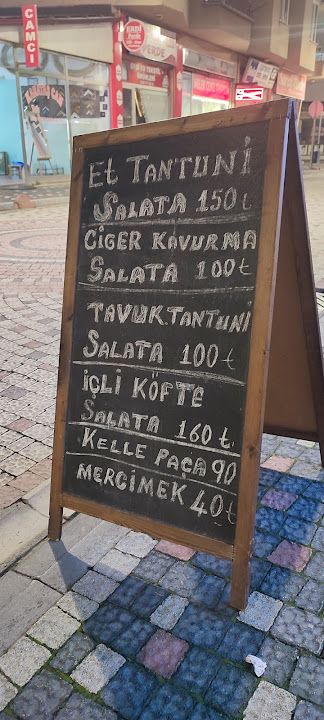 CAMCI
PERDE
ET TANTUNİ
SALATA 150₺
CİGER KAVURMA
SALATA 100₺
TAVUK.TANTUNİ
SALATA 100₺
İÇLİ KÖFTE
SALATA 160₺
KELLE PAÇA 90
MERCİMEK 40₺